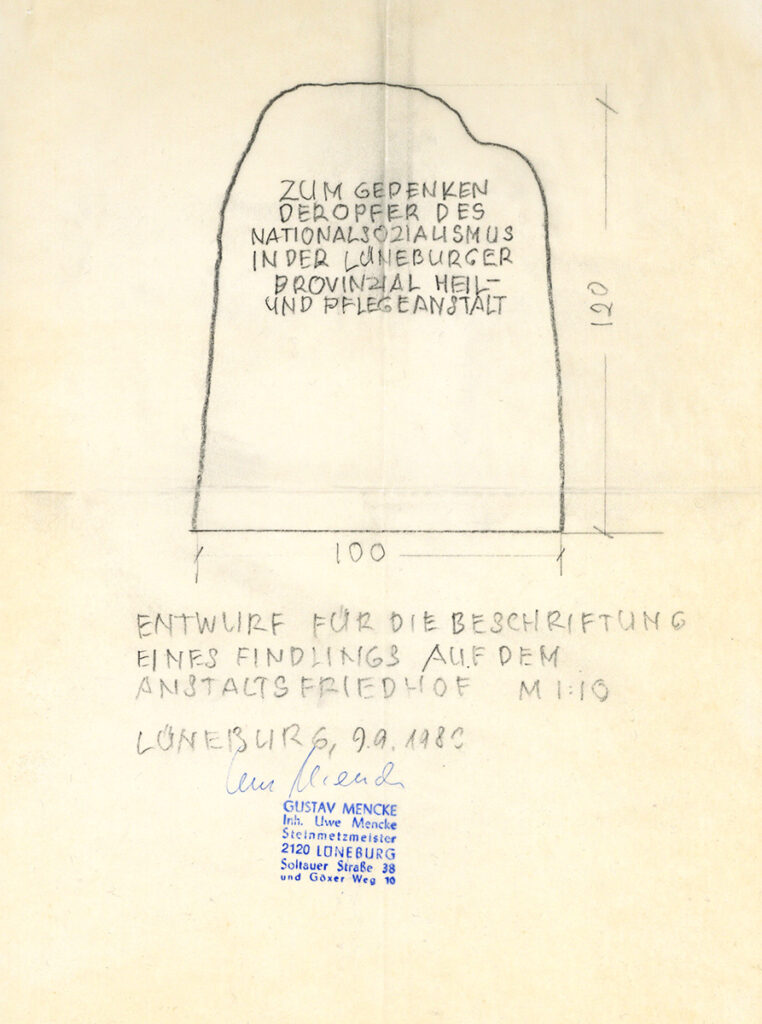 ZUM GEDENKEN
DER OPFER DES
NATIONALSOZIALISMUS
IN DER LÜNEBURGER
PROVINZIAL HEIL-
UND PFLEGEANSTALT
120
100
ENTWURF FÜR DIE BESCHRIFTUNG
EINES FINDLINGS AUF DEM
ANSTALTSFRIEDHOF M 1:10
LÜNEBURG, 9.9.
GUSTAV MENCKE
Inh. Uwe Mencke
Steinmetzmeister
2120 LÜNEBURG
Soltauer Straße 38
und Göxer Weg 10